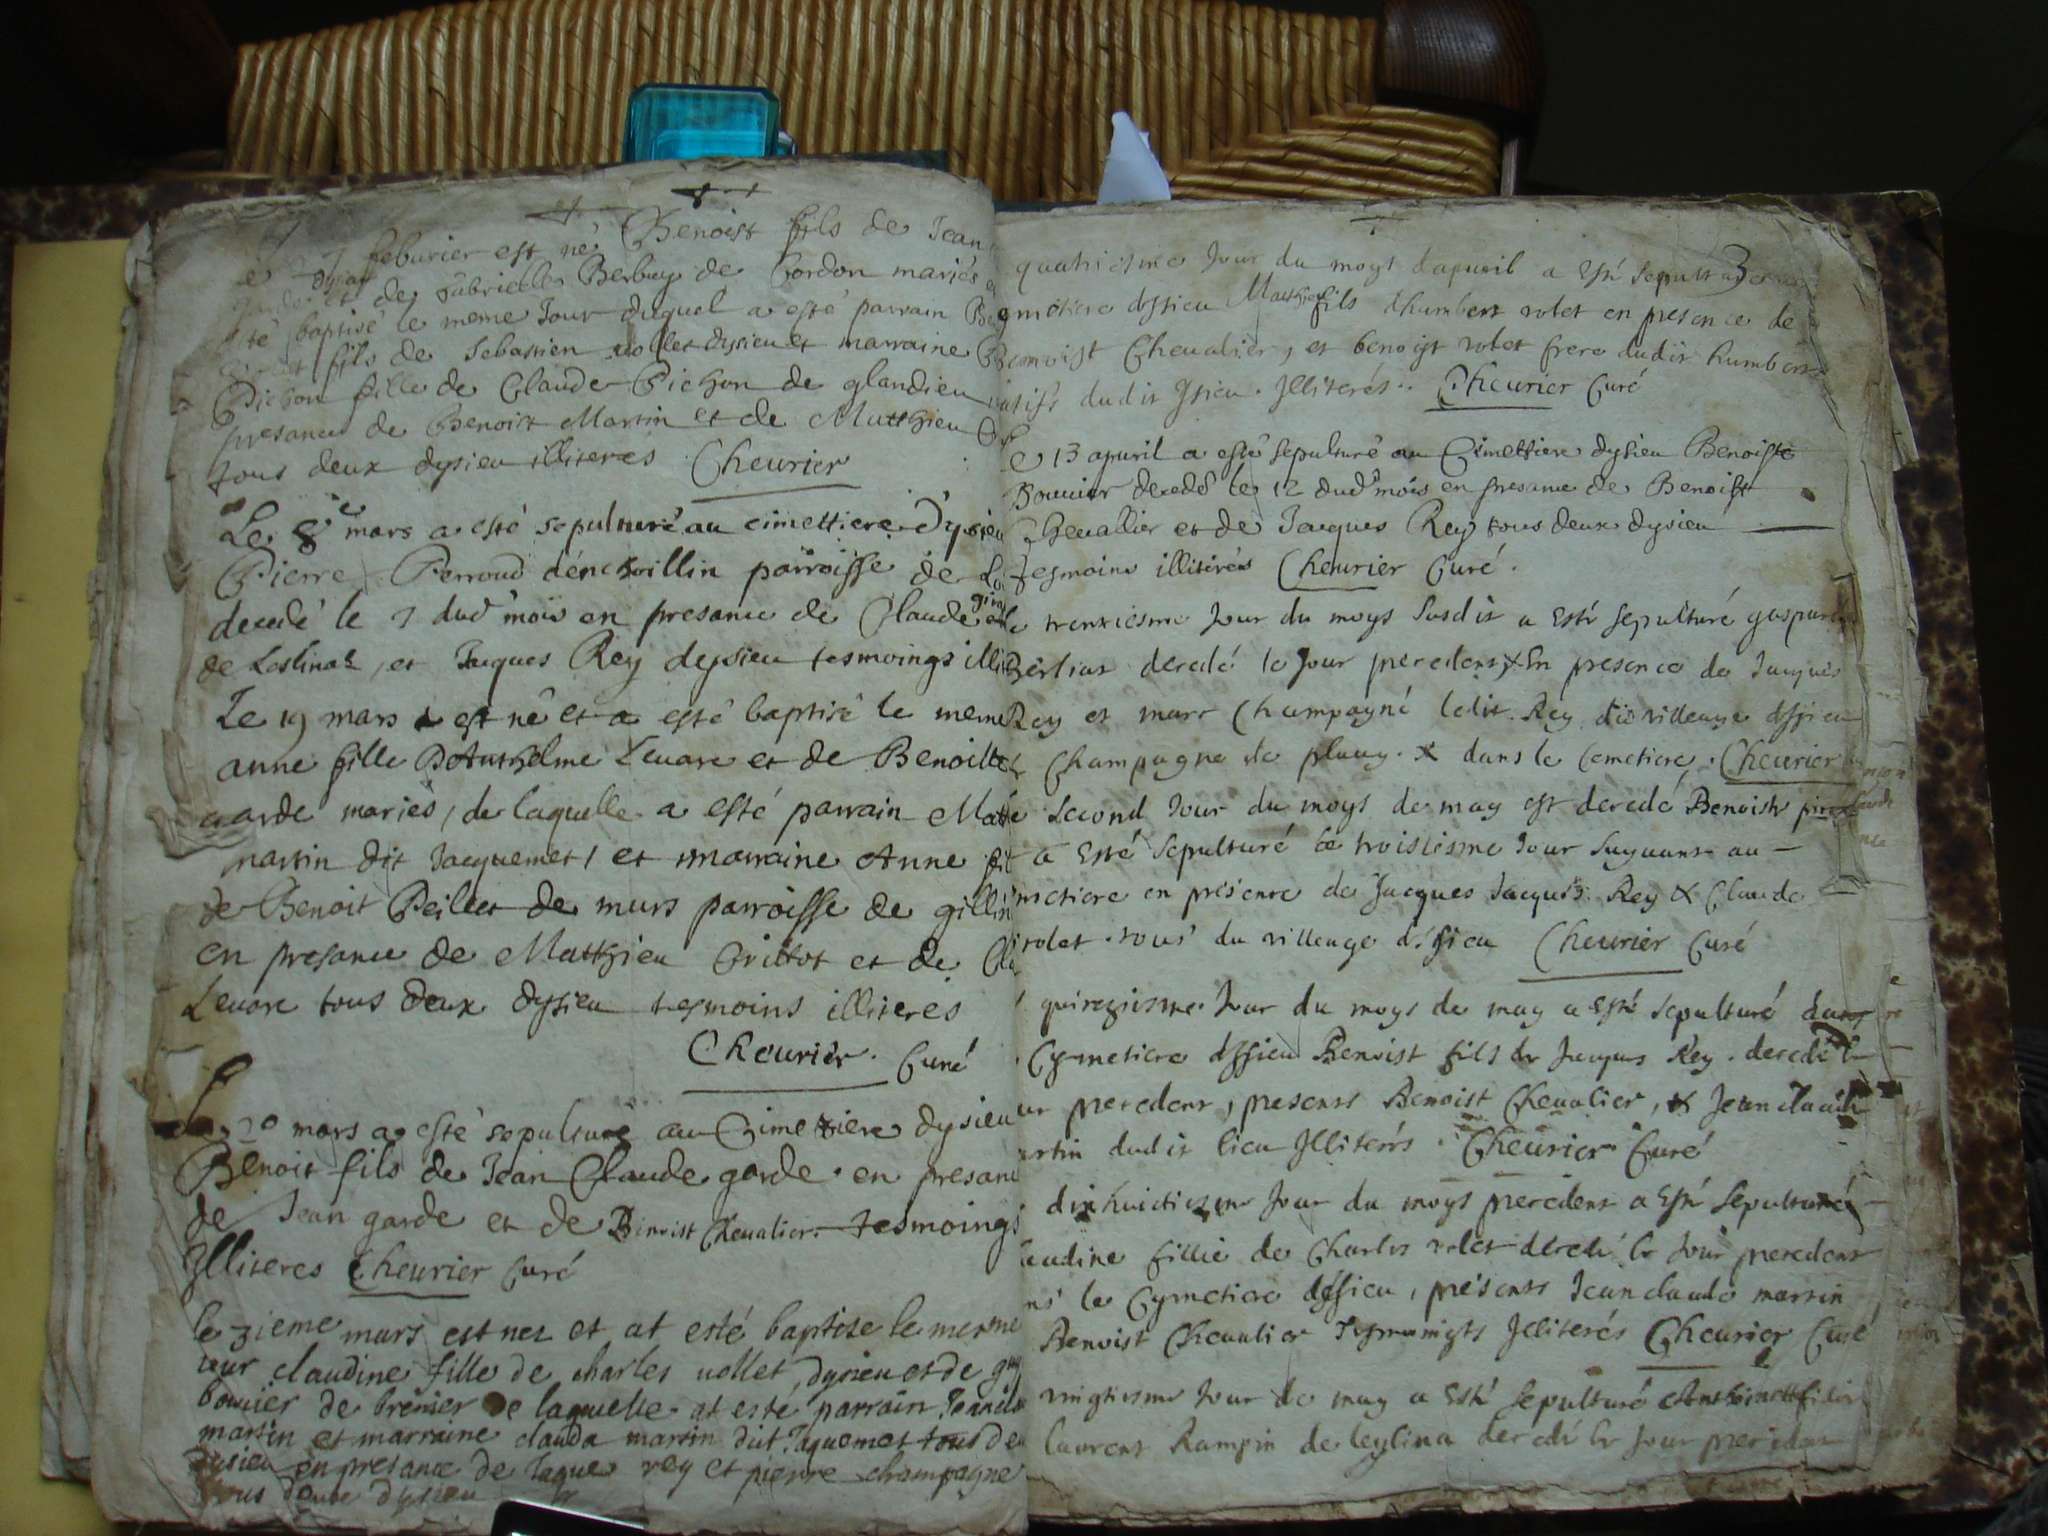 7 feburier est né Benoist fils de Jean
garde et de Gabrielle Berbuy de Cordon mariés
té baptisé le meme Jour duquel a esté parrain
fils de Sebastien uollet dysieu et marraine
Pichon fille de Claude Pichon de glandieu
presance de Benoist Martin et de Matthieu
tous deux dysieu illiteres Cheurier
Le 8e mars a esté sepulturé au cimettiere dysieu
Pierre Perroud dénchoillin parroisse de Lo
decedé le 7 dud mois en presance de Claude
de Leslinaz, et Jacques Rey deysieu tesmoings illi
Le 19 mars est né et a esté baptisé le meme
anne fille DAnthelme Leuare et de Benoitte
garde mariés, de laquelle a esté parrain Mat
martin dit Jacquemet, et marraine Anne
de Benoit Peillet de murs parroisse de gillin
en presance de Matthieu Crittot et de
Leuare tous deux dysieu tesmoins illiterés
Cheurier Curé
Le 20 mars a esté sepulturé au Cimetiere dysieu
Benoit fils de Jean Claude garde en presan
de Jean garde et de Benoist Cheualier tesmoings
Jlliteres Cheurier Curé
le zieme mars est nez et at esté baptise le mesme
iour claudine fille de charles uollet dysieu et de
bouuier de brénier de laquelle at esté parrain
martin et marraine clauda martin dit Jaquemet tous de
dysieu en presance de Jaque rey et pierre champagne
tous deux dysieu
quatriesme Jour du moys dapuril a Esté sepult
metiere dissieu Matthieu fils dhumbert rolet en presence de
Benoist Cheualier, et benoist rolet frere dudit humbert
natifs dudit ysieu Jlliterés Cheurier Curé
Le 13 apuril a esté sepulturé au Cimettiere dysieu Benoiste
Bouuier decedé le 12 dud mois en presance de Benoist
Cheuallier et de Jacques Rey tous deux dysieu
Tesmoins illiterés Cheurier Curé
trentiesme Jour du moys susdit a Esté sepulturé gasparde
Berliat decedé le Jour precedent En presence de Jacques
Rey et marc Champagne ledit Rey du villeage dissieu
Champagne de & dans le Cemetiere Cheurier
Second Jour du moys de may est decedé Benoist
a Esté sepulturé le troisiesme Jour suyuant au
metiere en presence de Jacques Jacques Rey & Claude
rolet tous du villeage dissieu Cheurier Curé
quinziesme Jour du moys de may a Esté sepulturé dans
Cymetiere dissieu Benoist fils de Jacques Rey decedé le
ur precedent, presents Benoist Cheualier, & Jean claude
artin dudit lieu Jlliterés Cheurier Curé
dixhuictiesme Jour du moys precedent a Esté sepulturé
audine fillie de Charles rolet decedé le Jour precedent
ns le Cymetiere dissieu, présents Jean claude martin
Benoist Cheualier Tesmoings Jlliterés Cheurier Curé
vingtiesme Jour de may a Esté sepulturé Anthoinette fillie
laurent Rampin de leylina decedé le Jour precedent